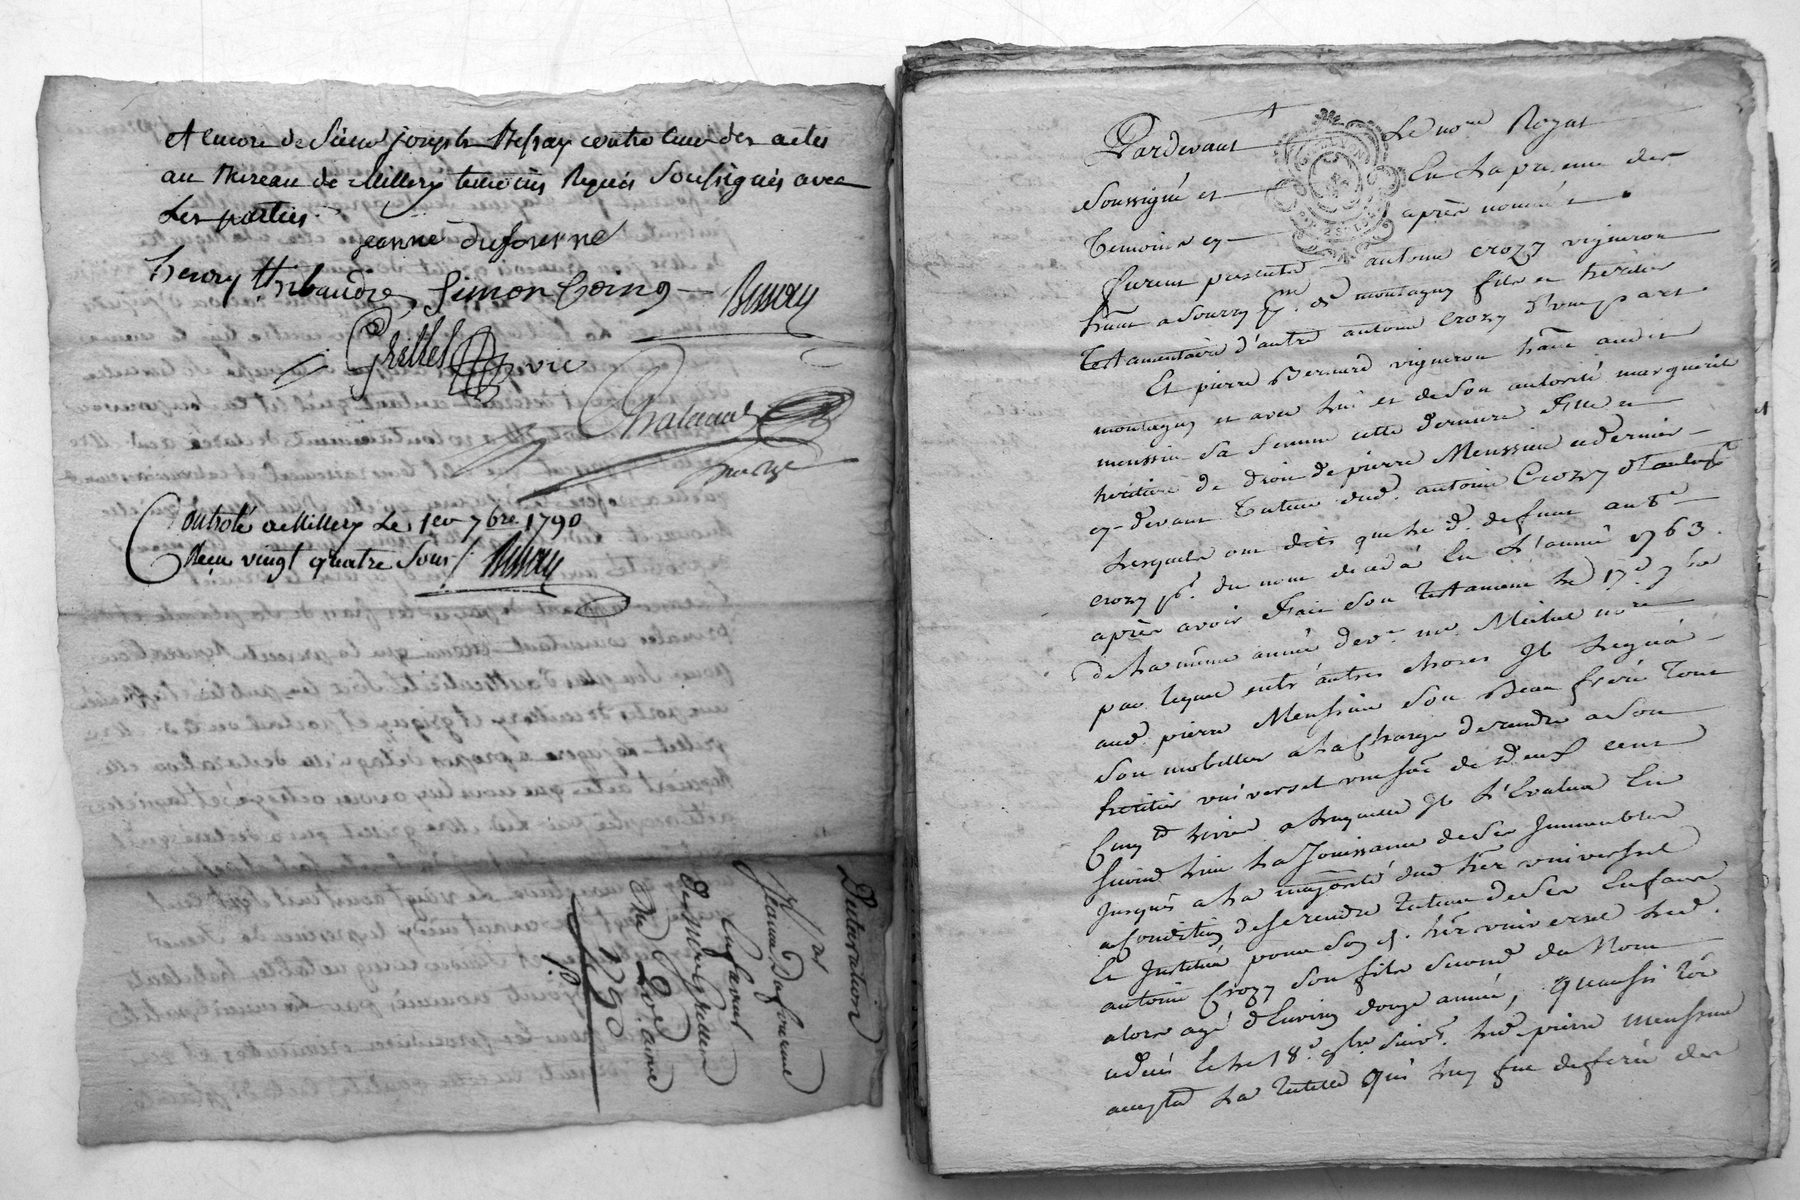 et encore de Sieur joseph Bessay controlleur des actes
au Bureau de Millery temoins Requis Soussignés avec
Les parties.
jeanne dufourne
henry Thibaudier, Simon Going Bessay
Grillet vic
Chaland
Controlé a Millery Le 1er 7bre 1790
Reçu vingt quatre Sous Bessay
Declaration
par
Jeanne Dufourne
Enfaveur
1790
Pardevant Le nore Royal
Soussigné et En La presence des
Temoins cy après nommés
furent presents antoine Crozy vigneron
hant a Sourzy psse de montagny fils et héritier
Testamentaire d'autre antoine Crozy d'une part
Et pierre Bernard vigneron hant audit
montagny et avec lui et de Son autorité marguerite
meussieu Sa femme cette derniere fille et
héritiere de droit de pierre Meussieu ce dernier
cy-devant Tuteur dud. antoine Crozy d'autre part
Lesquels ont dits que Led. defunt ant.e
crozy pr. du nom décédé En L'année 1763.
après avoir Fait Son Testament Le 17e 7bre
de La même année devt me. Michel nore
par lequel entr'autres choses Il Legua
aud. pierre Meussieu Son Beau frère Tout
Son mobillier a La Charge de rendre a Son
heritier universel une Some de Neuf cent
Cinqte Livres a Laquelle Il L'Evalua En
Suivt Lui La Jouissance de Ses Immeubles
Jusques a La majorité dud. hér universel
a Condition de Se rendre tuteur de Ses Enfans
Et Institua pour Son d. hér universel Led.
antoine Crozy Son fils Second du Nom
alors agé d'Environ douze années,
Le 18e 9bre Suivt. Led. pierre Meussieu
accepta La tutelle qui Luy fut deférée des